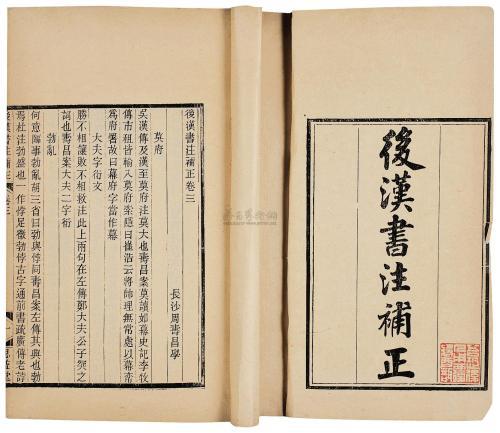 後漢書注補正
後漢書注補正卷三
長沙周壽昌學
莫府
吳漢傳及漢至莫府注莫大也壽昌案莫讀如幕史記李牧
傳市租皆輸入莫府索隱曰崔浩云將帥理無常處以幕帟
爲府署故曰幕府字當作幕
大夫字衍文
勝不相讓敗不相救注此上兩句在左傳鄭大夫公子突之
詞也壽昌案大夫二字衍
勃亂
何意臨事勃亂胡三省曰勃與悖同壽昌案左傳其興也勃
焉杜注勃盛也一作悖足徵勃悖古字通前書疏廣傳老誖
後漢書注補正 卷三 一